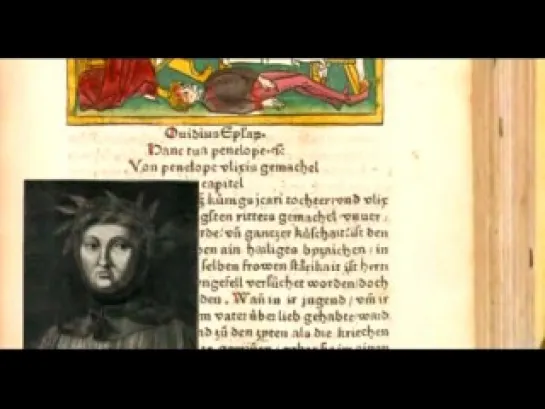 Ouidius Epſaꝝ
Hanc tua penelope ꝛc
Von penelope vlixis gemachel
capitel
künigs jcari tochter vnd vlix
gſten ritters gemachel, vnuer
rde, vn̄ gantzer kúſchait iſt den
ben ain hailiges bʒaichen, in
ſelben frowen ſtårikait iſt hern
ngeſell verſůchet worden, doch
den. Wan̄ in ir jugend, vn̄ ir
m vater über lieb gehabte, ward
nd zů den zyten als die kriechen